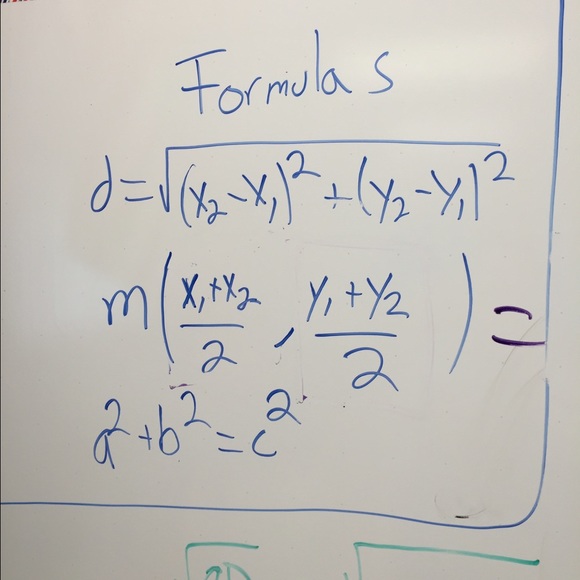 Formulas
d=√(x₂-x₁)²+(y₂-y₁)²
m(x₁+x₂/2, y₁+y₂/2) =
a²+b²=c²